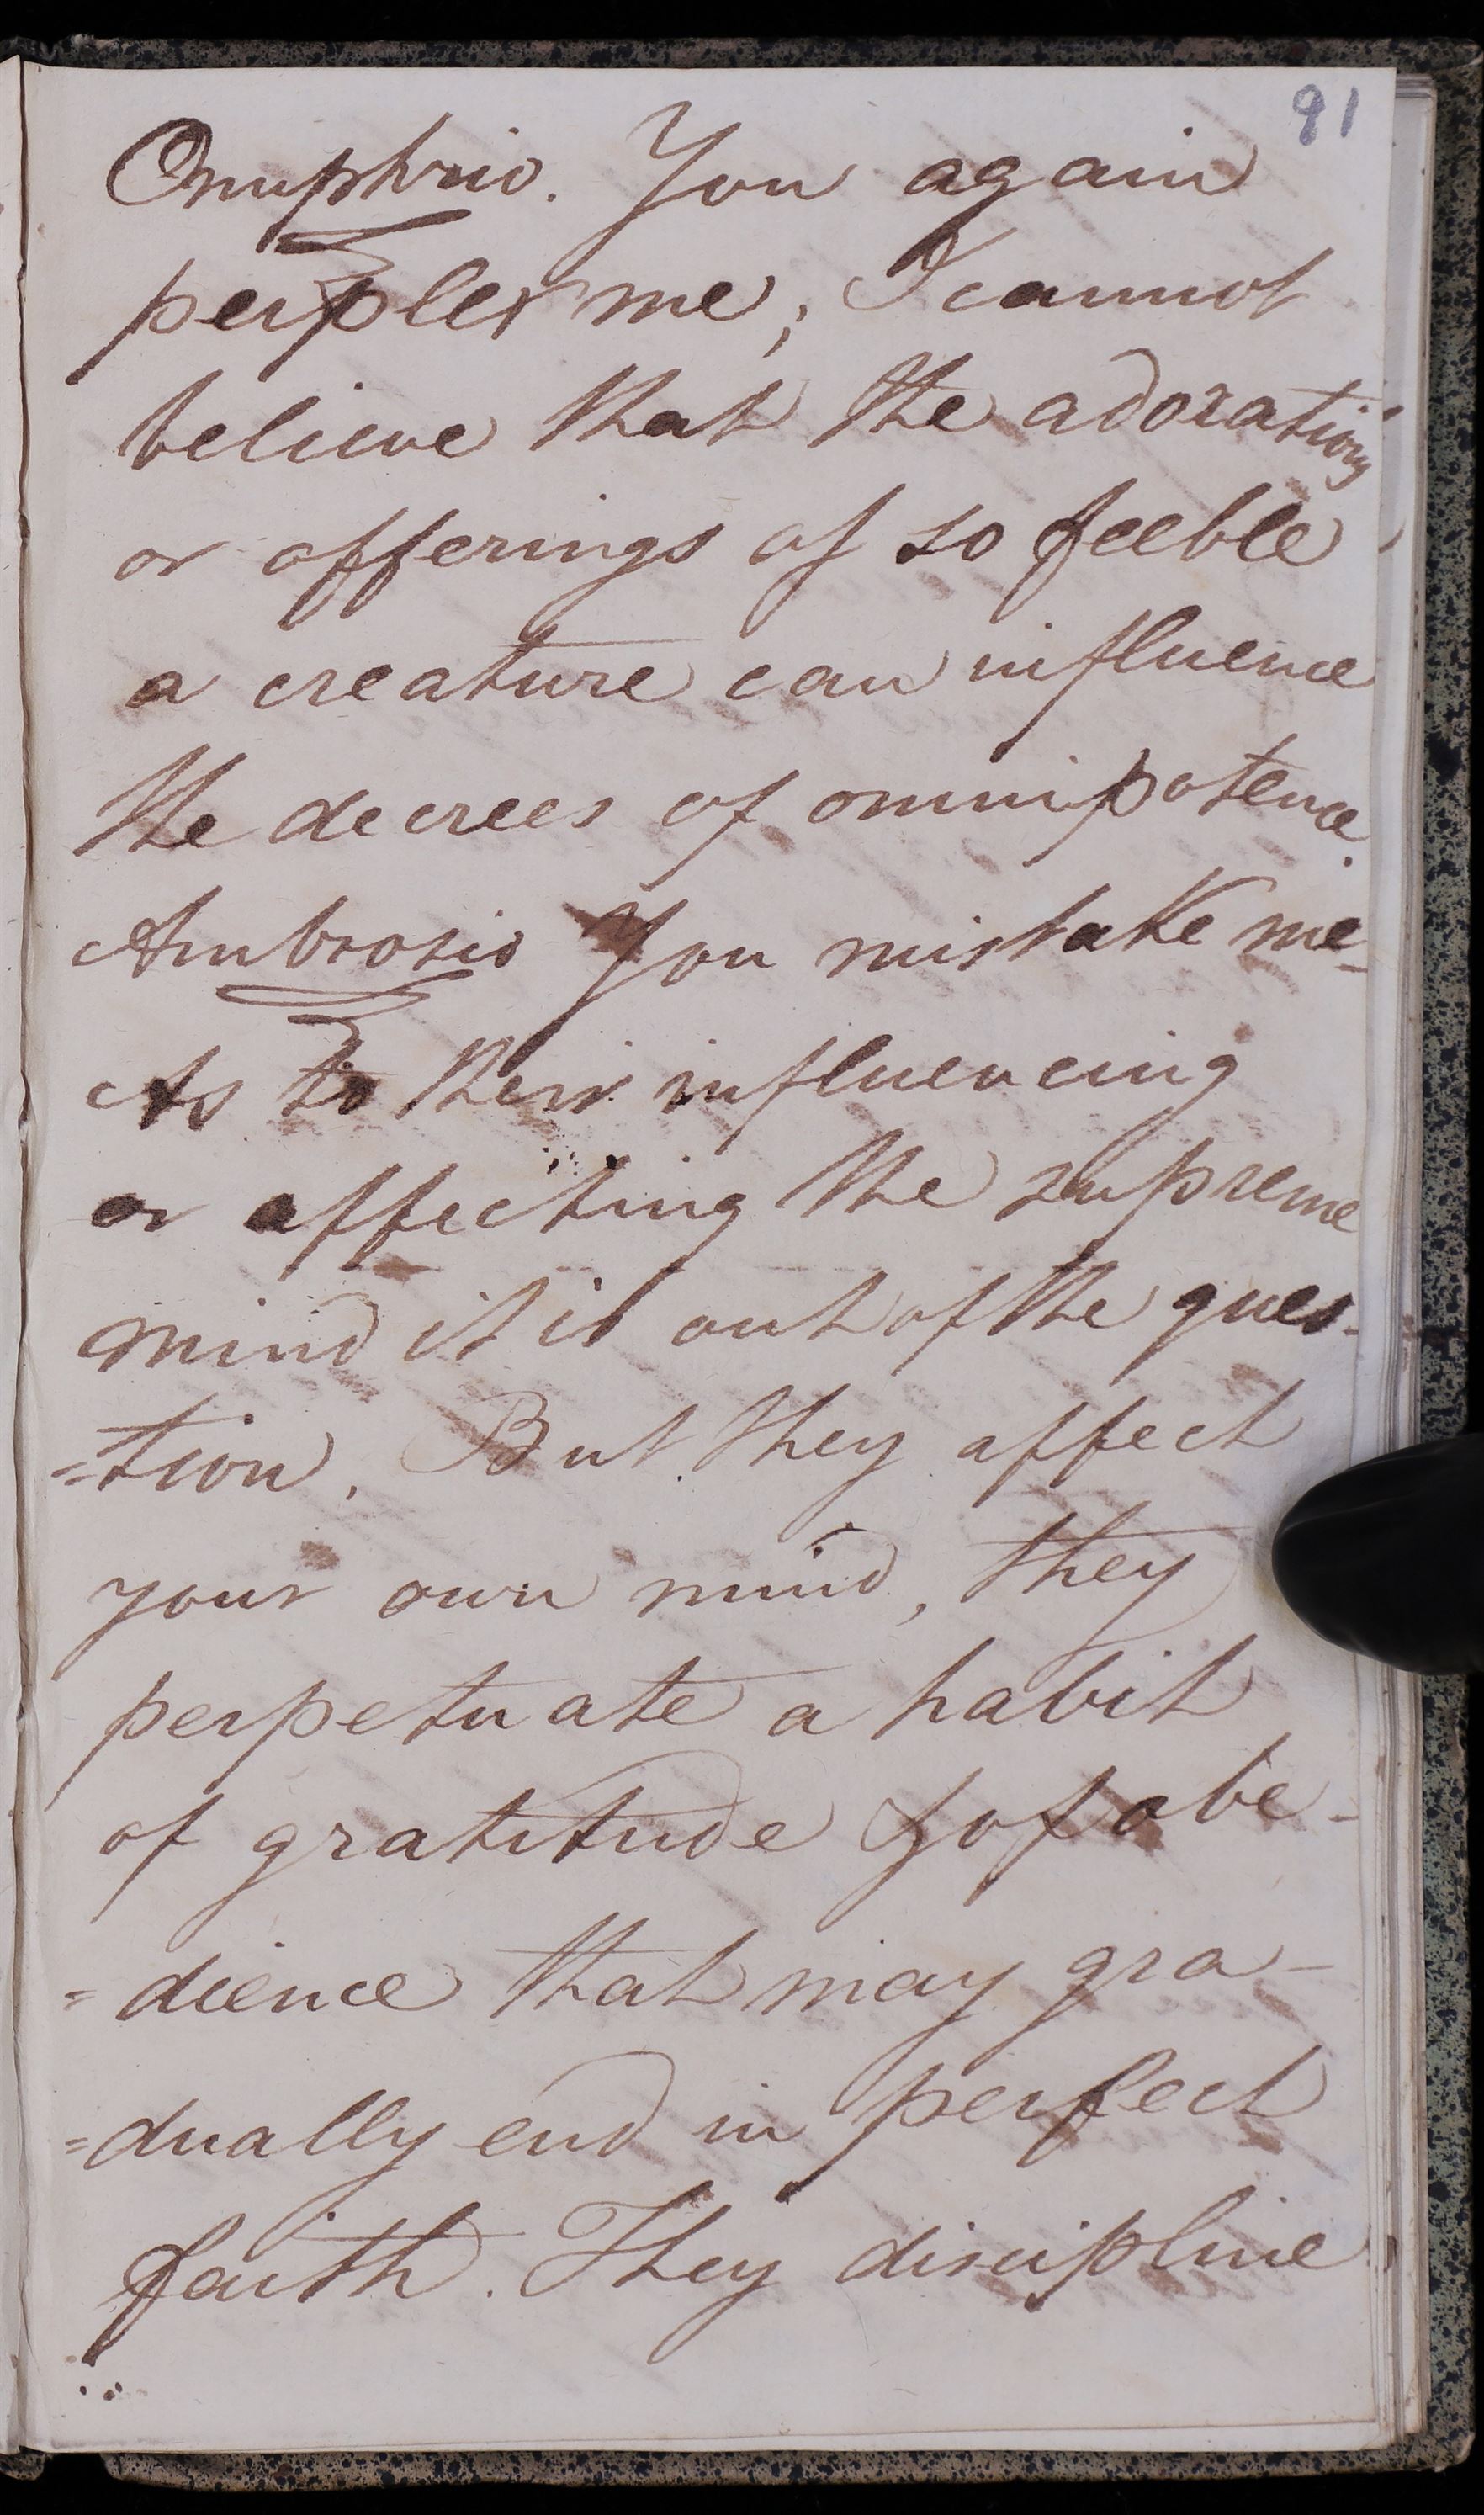 91
Onuphrio. You again
perplex me; I cannot
believe that the adorations
or offerings of so feeble
a creature can influence
the decrees of omnipotence.
Ambrosio You mistake me -
As to their influencing
or affecting the supreme
mind it is out of the ques-
=tion. But they affect
your own mind, they
perpetuate a habit
of gratitude & of obe-
=dience that may gra-
=dually end in perfect
faith. They discipline